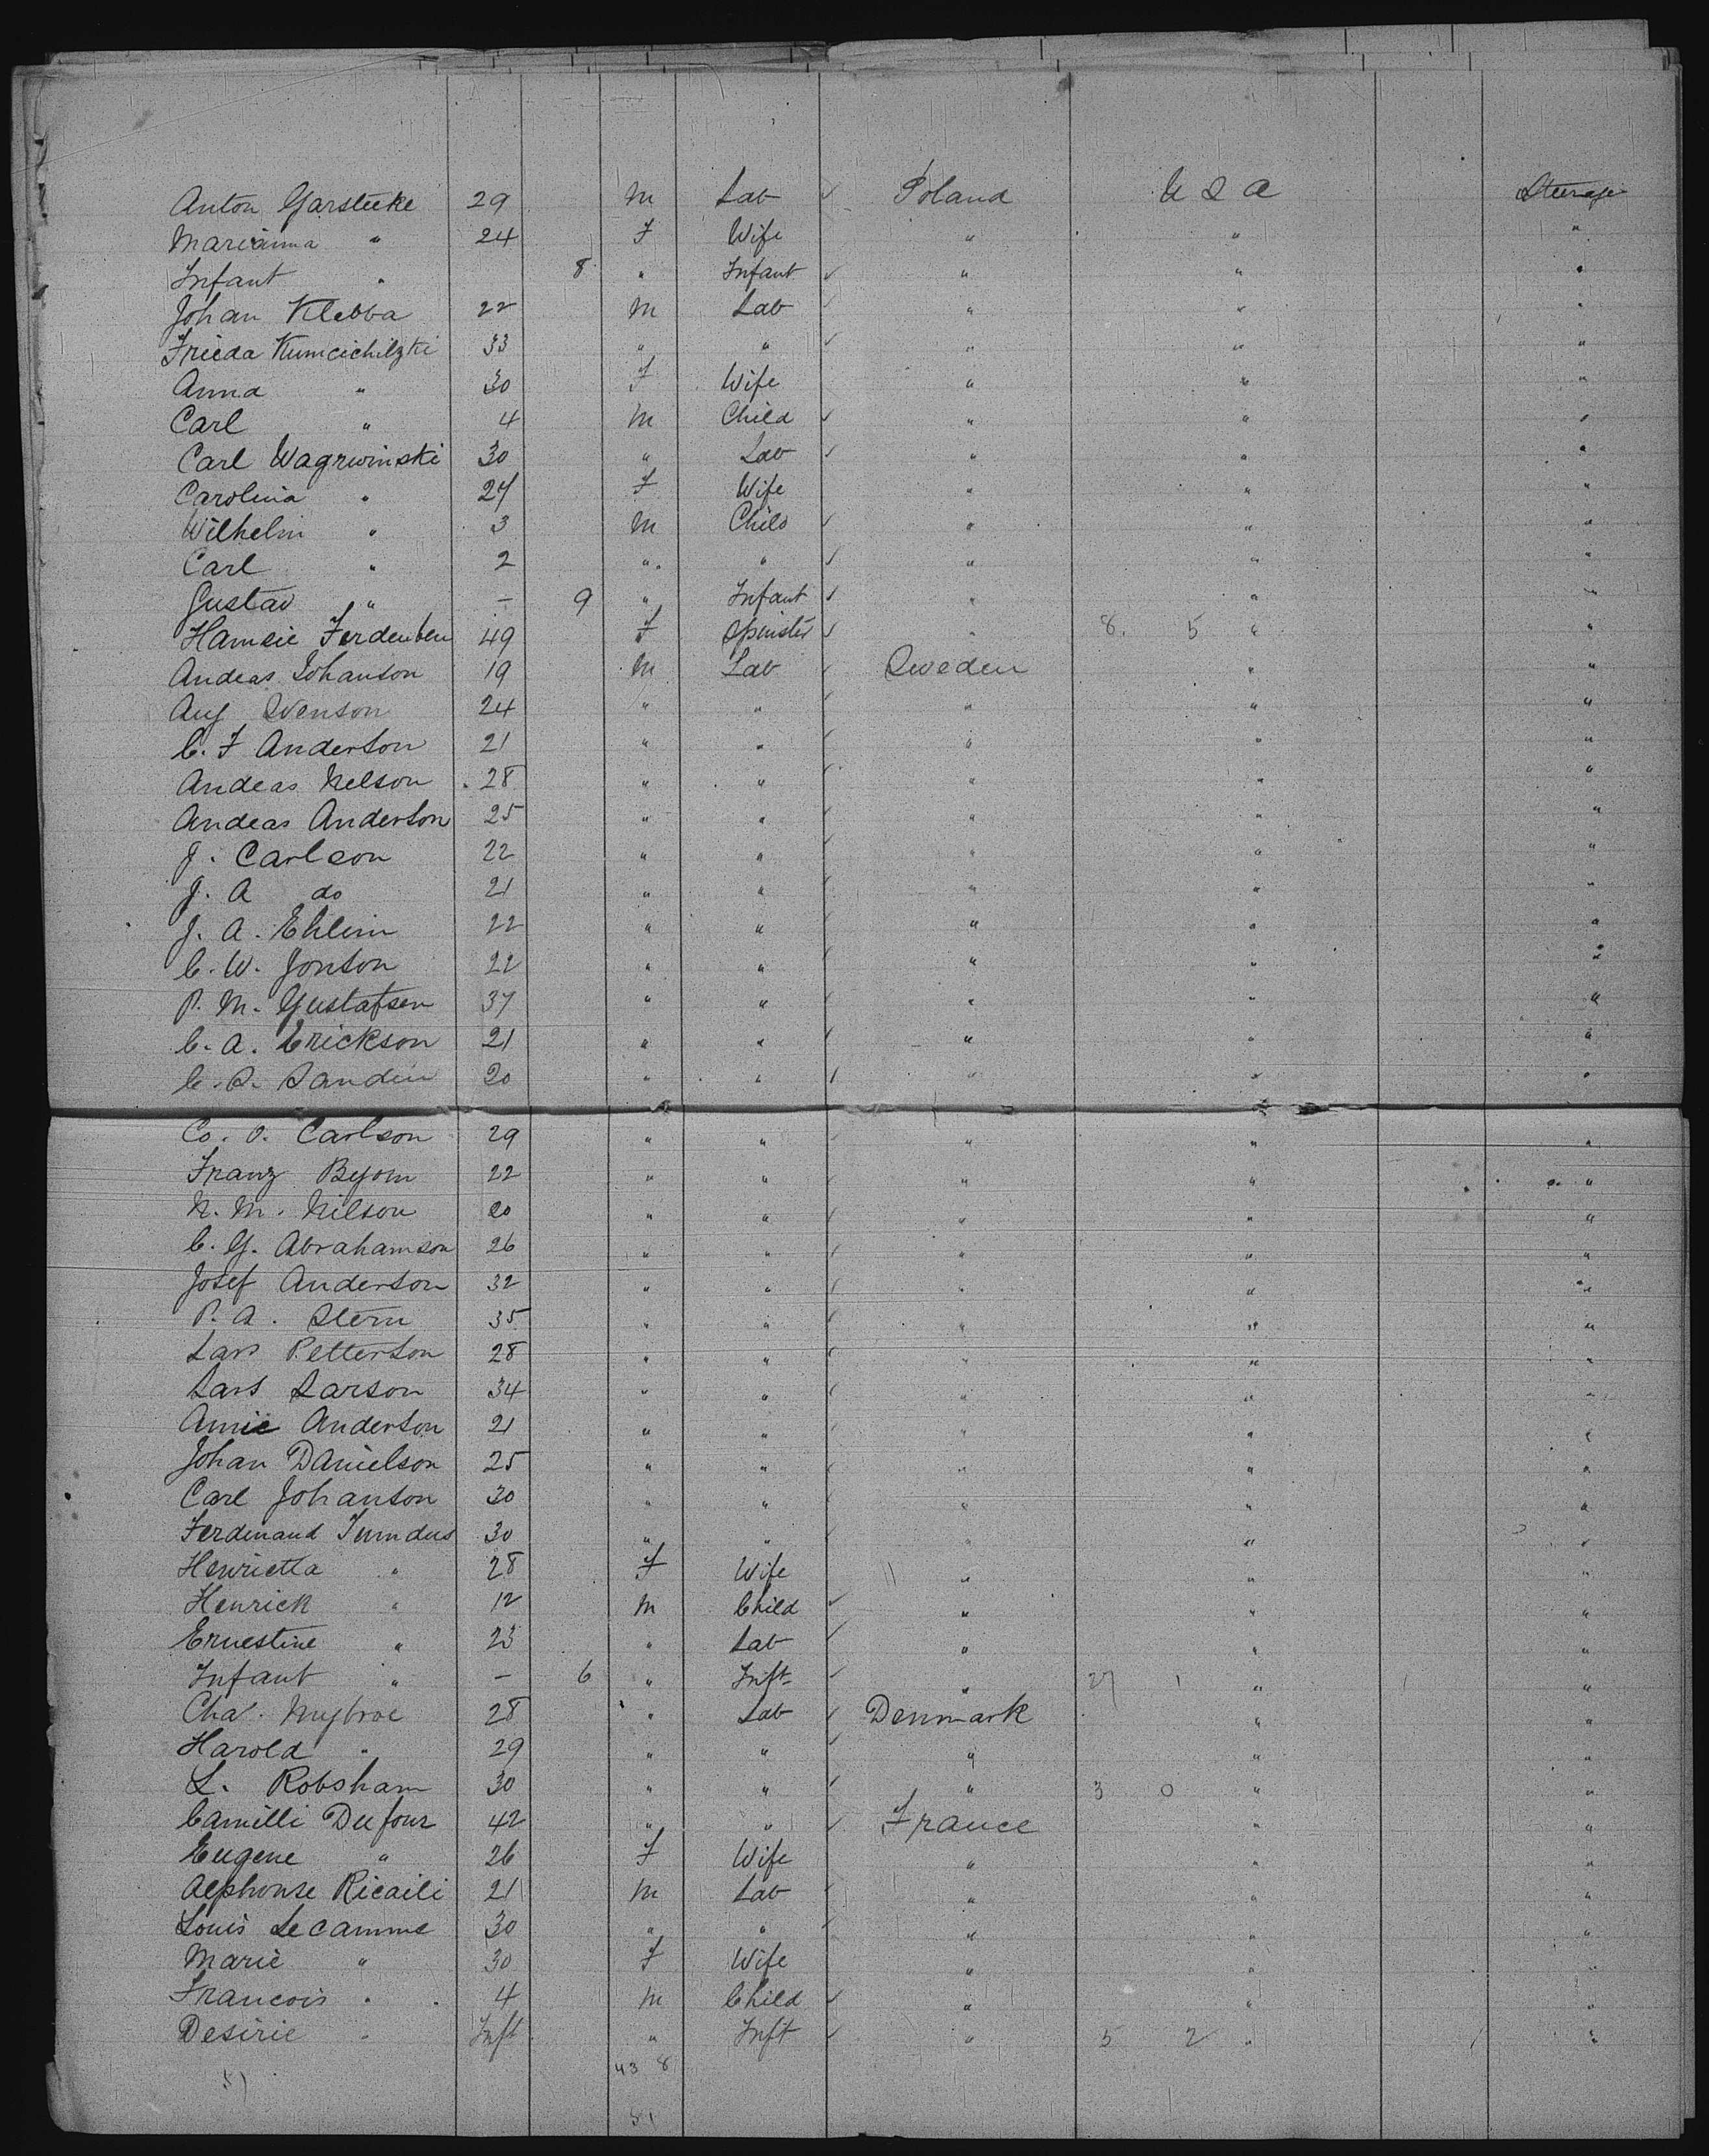 Anton Garsteeke 29 M Lab ✓ Poland U S A Steerage
Marianna " 24 F Wife " " "
Infant " 8 " Infant ✓ " " "
Johan Klebba 22 M Lab ✓ " " "
Frieda Kumcichilzki 33 " " ✓ " " "
Anna " 30 F Wife " " "
Carl " 4 M Child ✓ " " "
Carl Wagrwinski 30 " Lab ✓ " " "
Carolina " 27 F Wife " " "
Wilhelm " 3 M Child ✓ " " "
Carl " 2 " " ✓ " " "
Gustav " – 9 " Infant ✓ " " "
Hameie Ferdenben 49 F Spinster ✓ " 8. 5 " "
Andeas Johanson 19 M Lab ✓ Sweden " "
Aug Svenson 24 " " ✓ " " "
C. F Anderson 21 " " ✓ " " "
Andeas Nelson 28 " " ✓ " " "
Andeas Anderson 25 " " ✓ " " "
J. Carlson 22 " " ✓ " " "
J. A do 21 " " ✓ " " "
J. A. Ehlin 22 " " ✓ " " "
C. W. Jonson 22 " " ✓ " " "
P. M. Gustafsen 37 " " ✓ " " "
C. A. Erickson 21 " " ✓ " " "
C. S. Sandin 20 " " ✓ " " "
Co. O. Carlson 29 " " ✓ " " "
Franz Byom 22 " " ✓ " " "
N. M. Nilson 20 " " ✓ " " "
C. G. Abrahamson 26 " " ✓ " " "
Josef Anderson 32 " " ✓ " " "
P. A. Stern 35 " " ✓ " " "
Lars Petterson 28 " " ✓ " " "
Lars Larson 34 " " ✓ " " "
Annie Anderson 21 " " ✓ " " "
Johan Danielson 25 " " ✓ " " "
Carl Johanson 30 " " ✓ " " "
Ferdinand Tumdus 30 " " ✓ " " "
Henrietta " 28 F Wife " " "
Henrick " 12 M Child ✓ " " "
Ernestine " 23 " Lab ✓ " " "
Infant " – 6 " Inft ✓ " 27 1 " "
Cha. Nybroe 28 " Lab ✓ Denmark " "
Harold " 29 " " ✓ " " "
L. Robsham 30 " " ✓ " 3 0 " "
Camilli Dufour 42 " " ✓ France " "
Eugene " 26 F Wife " " "
Alphonse Ricaili 21 M Lab ✓ " " "
Louis Lecamme 30 " " ✓ " " "
Marie " 30 F Wife " " "
Francois " 4 M Child ✓ " " "
Desirie " Inft " Inft ✓ " 5 2 " "
43 8
51 51